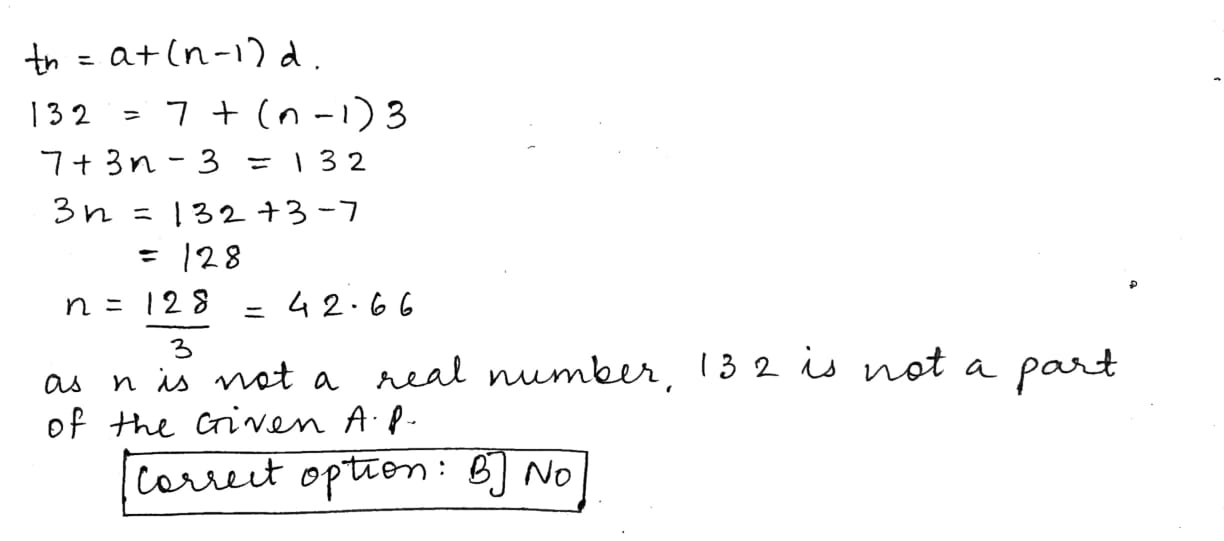 tn = a+(n-1) d.
132 = 7 + (n-1) 3
7+3n-3 = 132
3n = 132+3-7
= 128
n = 128/3 = 42.66
as n is not a real number, 132 is not a part
of the Given A.P.
Correct option: B] No